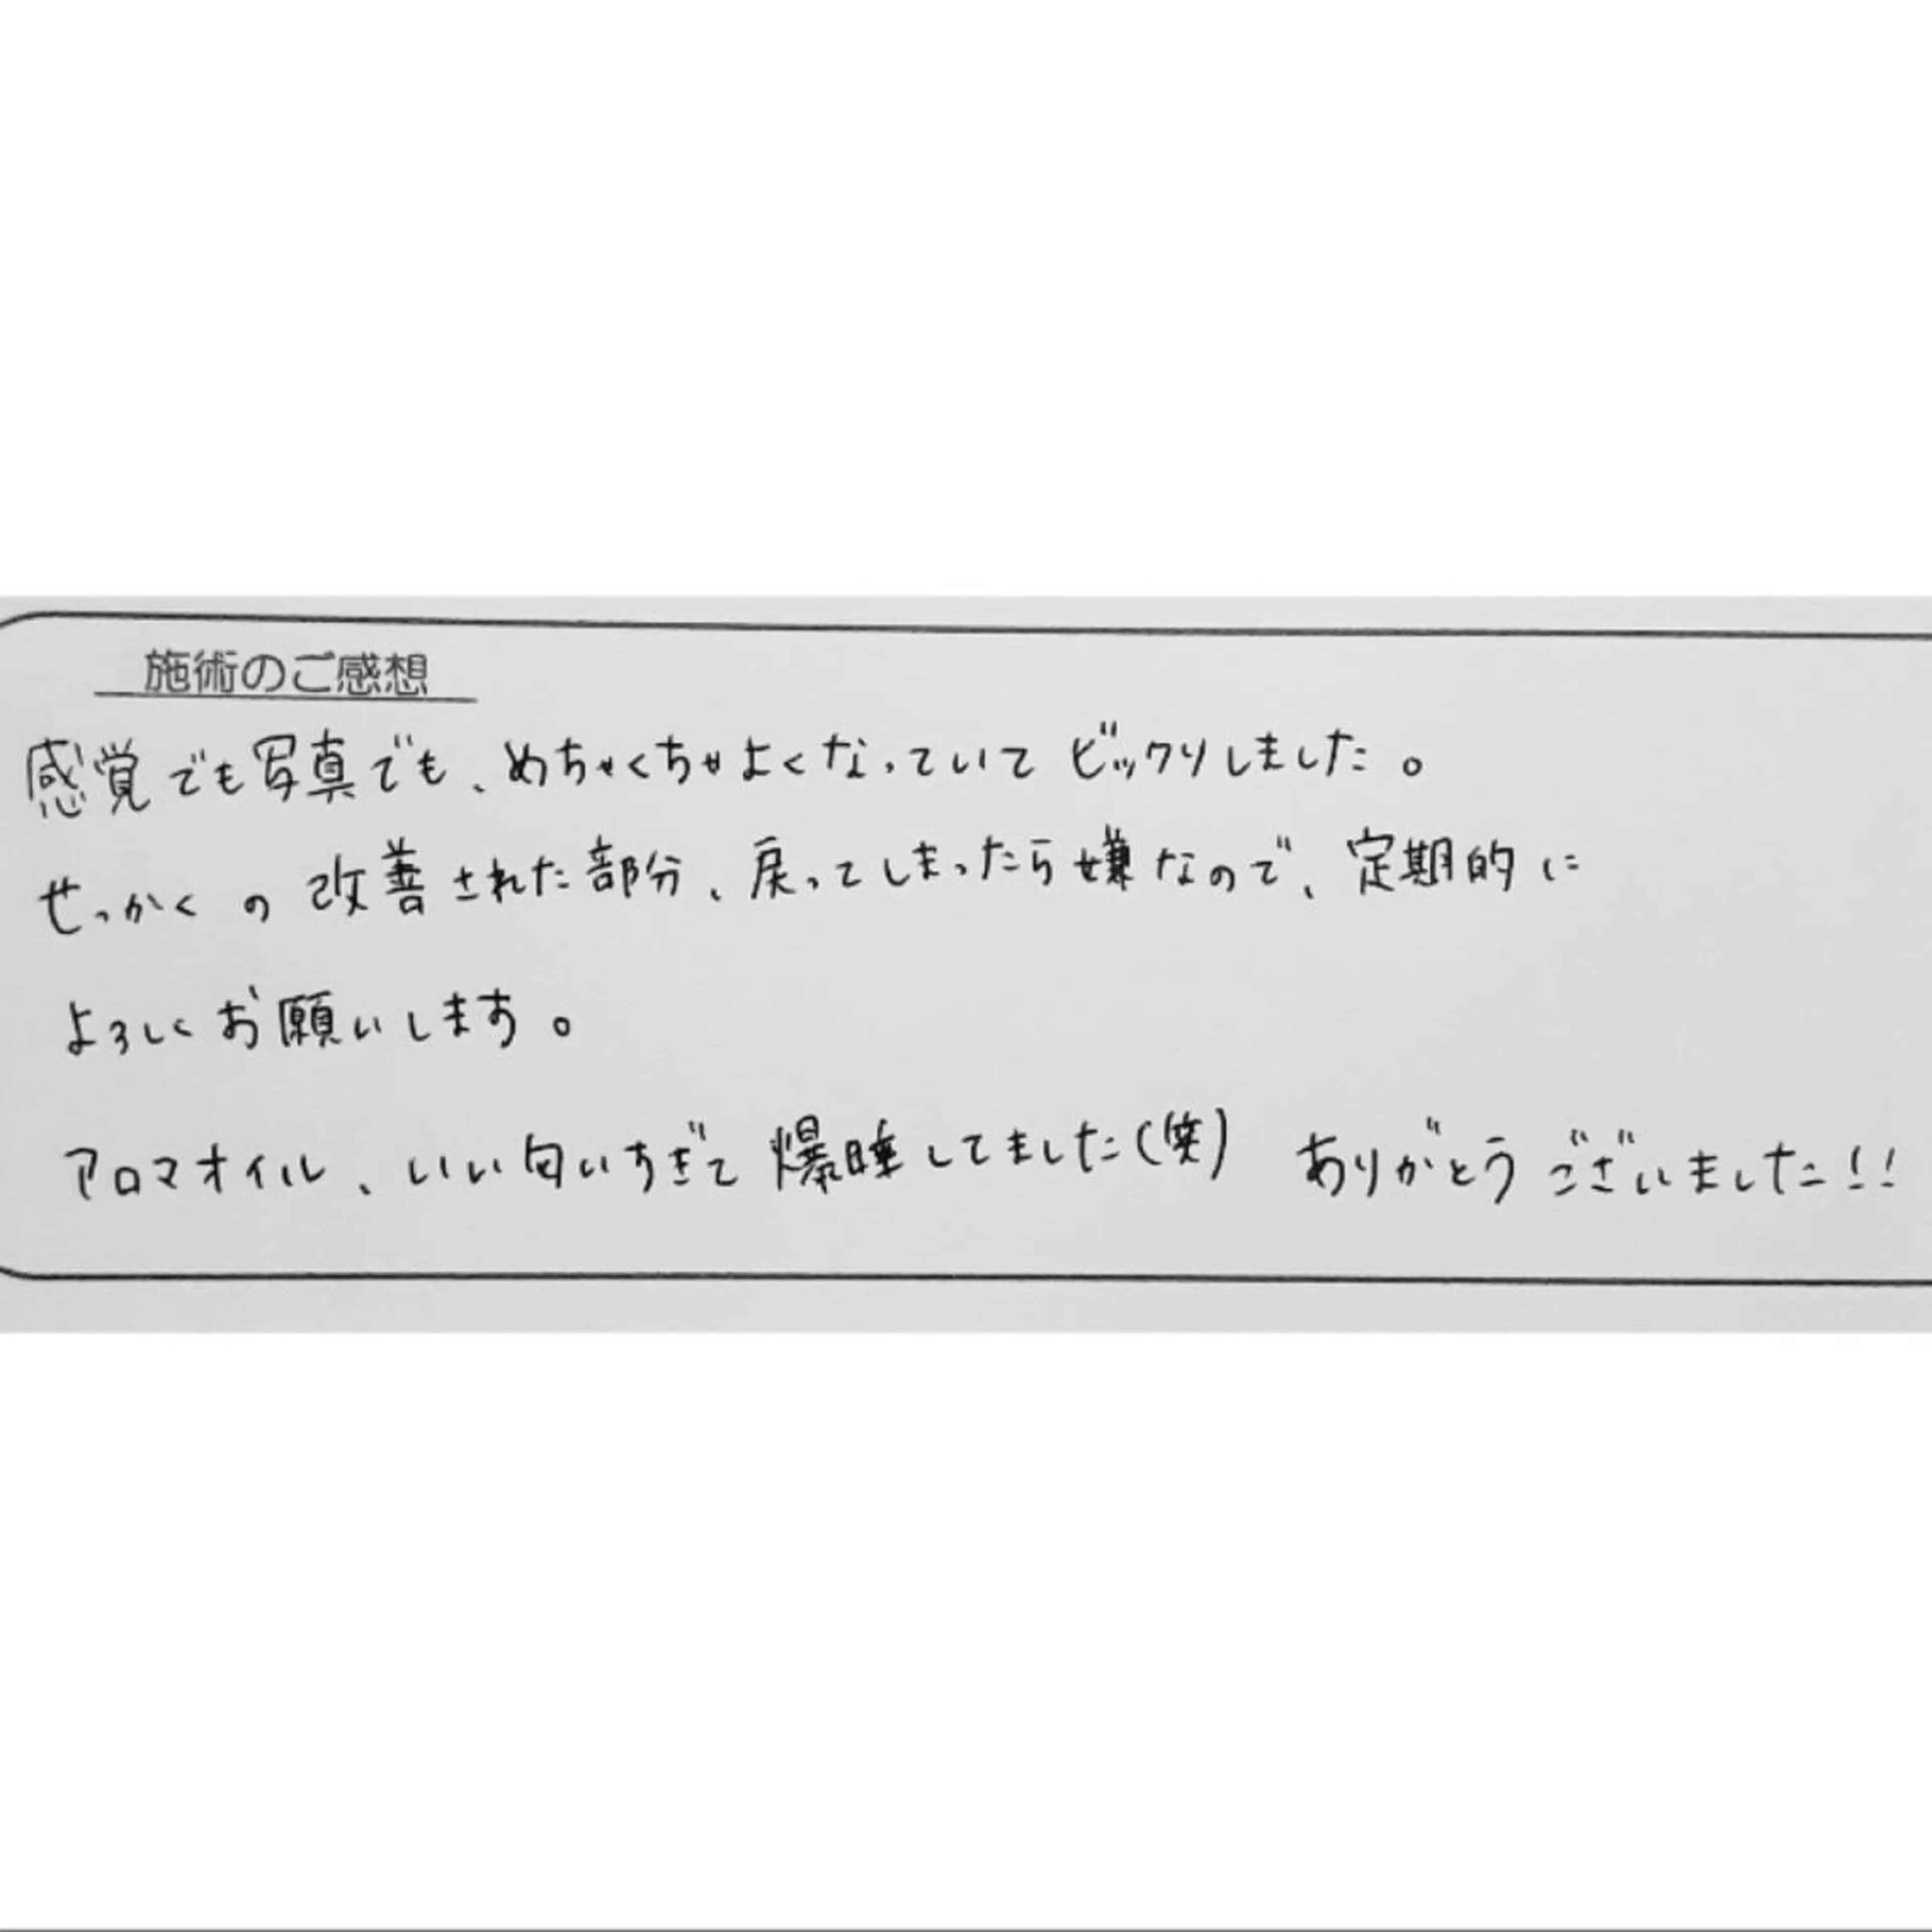 施術のご感想
感覚でも写真でも、めちゃくちゃよくなっていてビックリしました。
せっかくの改善された部分、戻ってしまったら嫌なので、定期的に
よろしくお願いします。
アロマオイル、いい匂いすぎて爆睡してました(笑) ありがとうございました!!